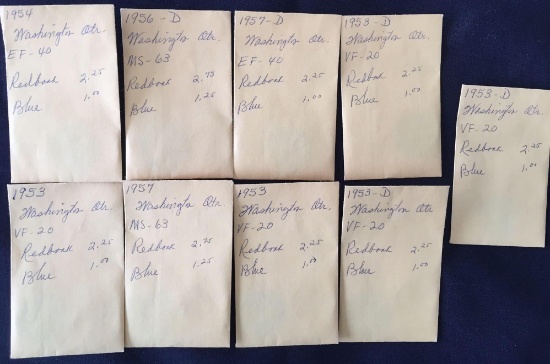 1954
Washington Qtr.
EF-40
Redbook 2.25
Blue 1.00
1956-D
Washington Qtr.
MS-63
Redbook 2.75
Blue 1.25
1957-D
Washington Qtr.
EF-40
Redbook 2.25
Blue 1.00
1953-D
Washington Qtr.
VF-20
Redbook 2.25
Blue 1.00
1953-D
Washington Qtr.
VF-20
Redbook 2.25
Blue 1.00
1953
Washington Qtr.
VF-20
Redbook 2.25
Blue 1.00
1957
Washington Qtr.
MS-63
Redbook 2.75
Blue 1.25
1953
Washington Qtr.
VF-20
Redbook 2.25
Blue 1.00
1953-D
Washington Qtr.
VF-20
Redbook 2.25
Blue 1.00